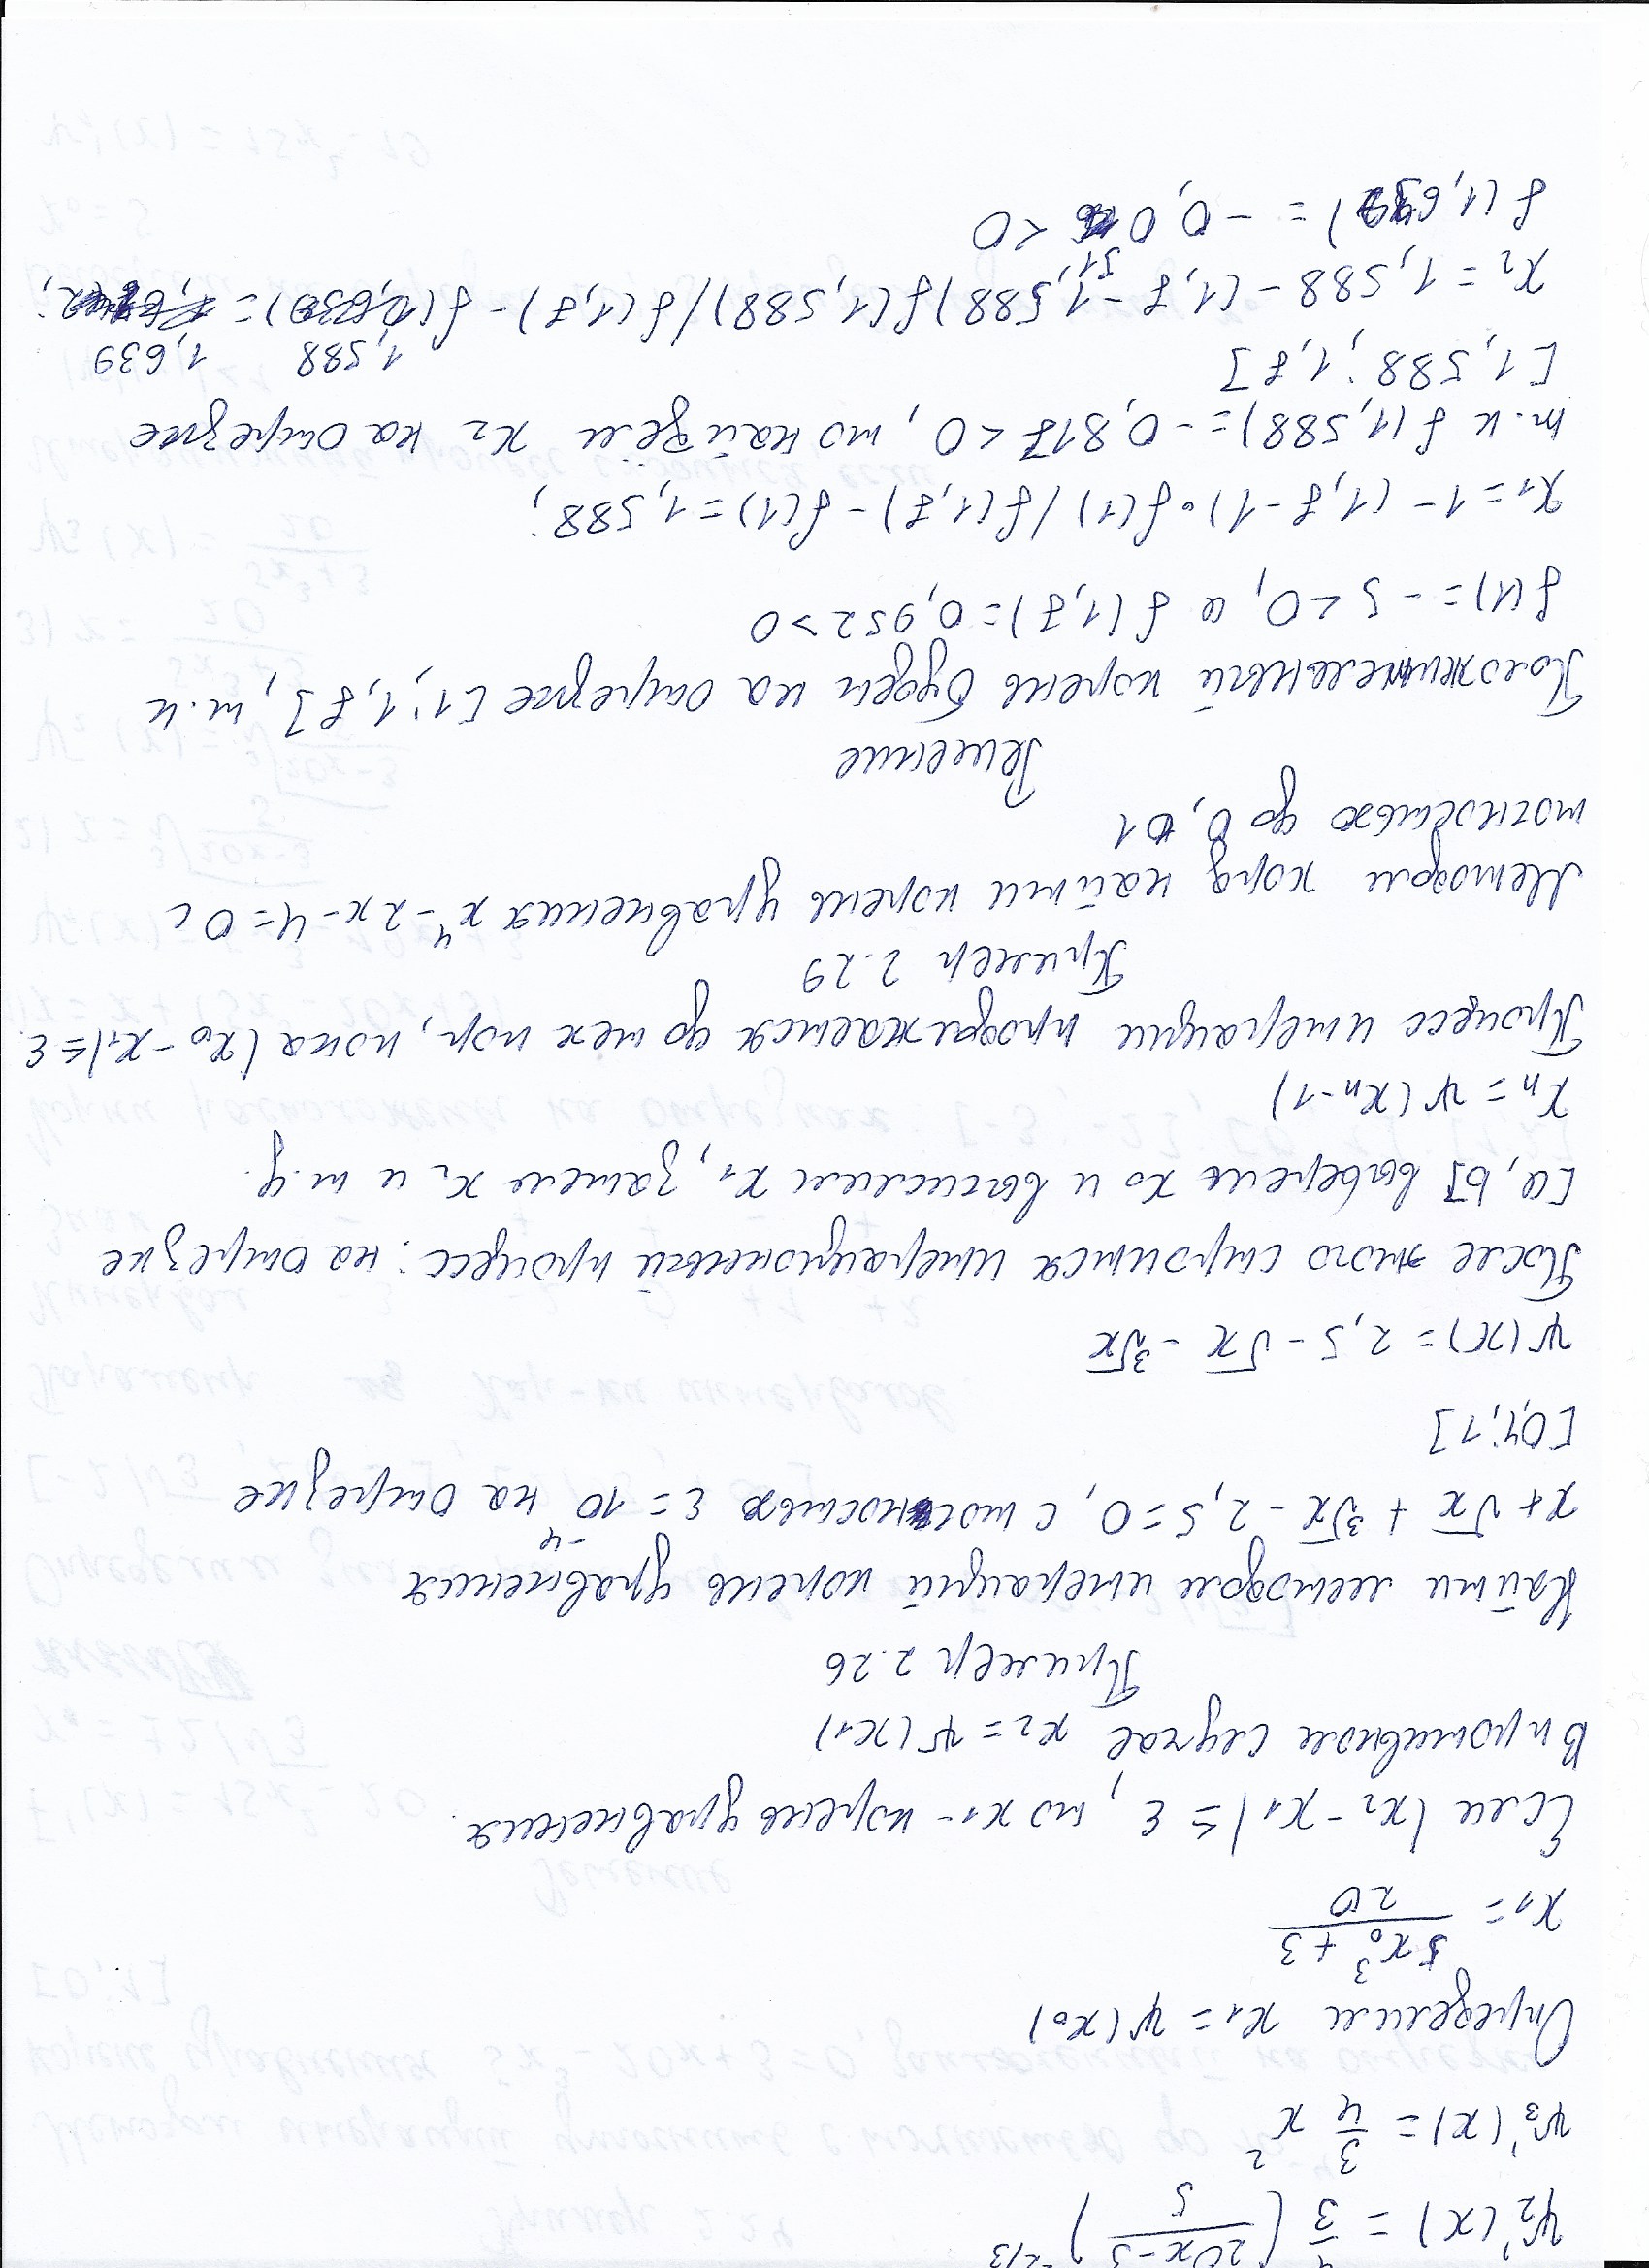 ψ₂'(x) = 4/3 ((20x-3)/5)^(-2/3)
ψ₃'(x) = 3/4 x²
Определим x₁ = ψ(x₀)
x₁ = (5x₀³ + 3)/20
Если |x₂ - x₁| ≤ ε, то x₁ - корень уравнения.
В противном случае x₂ = ψ(x₁)
Пример 2.26
Найти методом итераций корень уравнения
x + √x + ∛x - 2,5 = 0, с точностью ε = 10⁻⁴ на отрезке
[0,4; 1]
ψ(x) = 2,5 - √x - ∛x
После этого строится итерационный процесс: на отрезке
[a, b] выберем x₀ и вычислим x₁, затем x₂ и т.д.
xₙ = ψ(xₙ-1)
Процесс итерации продолжается до тех пор, пока |x₀ - x₁| ≤ ε.
Пример 2.29
Методом хорд найти корень уравнения x⁴ - 2x - 4 = 0 с
точностью до 0,01
Решение
Положительный корень будет на отрезке [1; 1,7], т.к
f(1) = -5 < 0, а f(1,7) = 0,952 > 0
x₁ = 1 - (1,7 - 1)•f(1) / f(1,7) - f(1) = 1,588;
т.к f(1,588) = -0,817 < 0, то найдём x₂ на отрезке
[1,588; 1,7]
x₂ = 1,588 - (1,7 - 1,588)f(1,588) / f(1,7) - f(1,588) = 1,639;
f(1,639) = -0,051 < 0